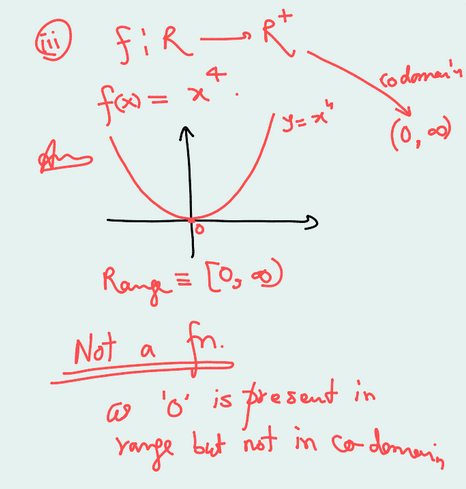 (iii) f : R → R⁺
codomain
(0, ∞)
f(x) = x⁴.
y = x⁴
Ans
0
Range = [0, ∞)
Not a fn.
as '0' is present in
range but not in co-domain,